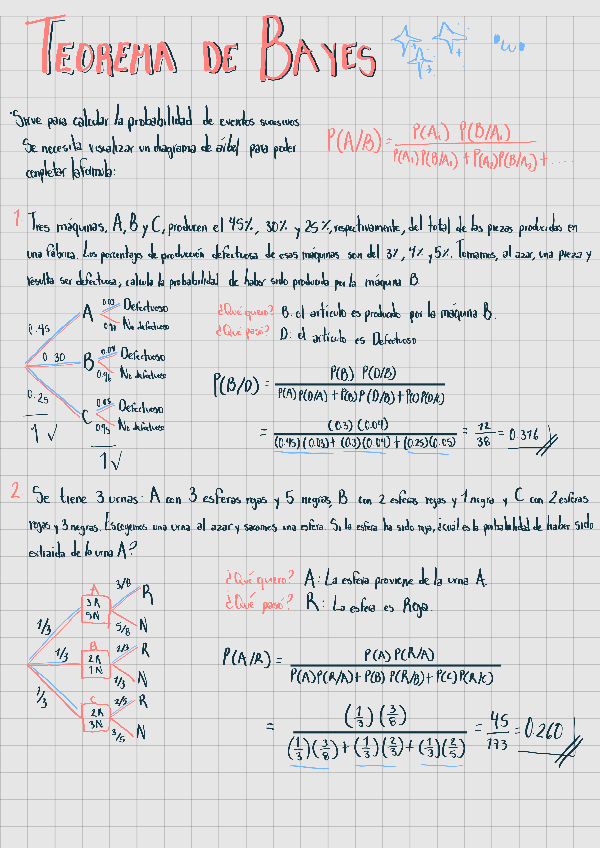 TEOREMA DE BAYES
•ω•
*Sirve para calcular la probabilidad de eventos sucesivos
Se necesita visualizar un diagrama de árbol para poder
completar la formula:
P(A/B) = P(A₁) P(B/A₁) / P(A₁)P(B/A₁) + P(A₂)P(B/A₂) + ....
1 Tres máquinas, A, B y C, producen el 45%, 30% y 25%, respectivamente, del total de las piezas producidas en
una fábrica. Los porcentajes de producción defectuosa de esas máquinas son del 3%, 4% y 5%. Tomamos, al azar, una pieza y
resulta ser defectuosa, calcula la probabilidad de haber sido producida por la máquina B.
0.45 A 0.03 Defectuoso
0.97 No defectuoso
0.30 B 0.04 Defectuoso
0.96 No defectuoso
0.25 C 0.05 Defectuoso
0.95 No defectuoso
1✓
1✓
¿Qué quiero? B: el artículo es producido por la máquina B.
¿Qué pasó? D: el artículo es Defectuoso
P(B/D) = P(B) P(D/B) / P(A)P(D/A) + P(B)P(D/B) + P(C)P(D/C)
= (0.3)(0.04) / (0.45)(0.03) + (0.3)(0.04) + (0.25)(0.05) = 12/38 = 0.316
2 Se tiene 3 urnas: A con 3 esferas rojas y 5 negras, B con 2 esferas rojas y 1 negra y C con 2 esferas
rojas y 3 negras. Escogemos una urna al azar y sacamos una esfera. Si la esfera ha sido roja, ¿cuál es la probabilidad de haber sido
extraída de la urna A?
1/3 A 3R 5N 3/8 R
5/8 N
1/3 B 2R 1N 2/3 R
1/3 N
1/3 C 2R 3N 2/5 R
3/5 N
¿Qué quiero? A: La esfera proviene de la urna A.
¿Qué pasó? R: La esfera es Roja.
P(A/R) = P(A)P(R/A) / P(A)P(R/A) + P(B)P(R/B) + P(C)P(R/C)
= (1/3)(3/8) / (1/3)(3/8) + (1/3)(2/3) + (1/3)(2/5) = 45/173 = 0.260